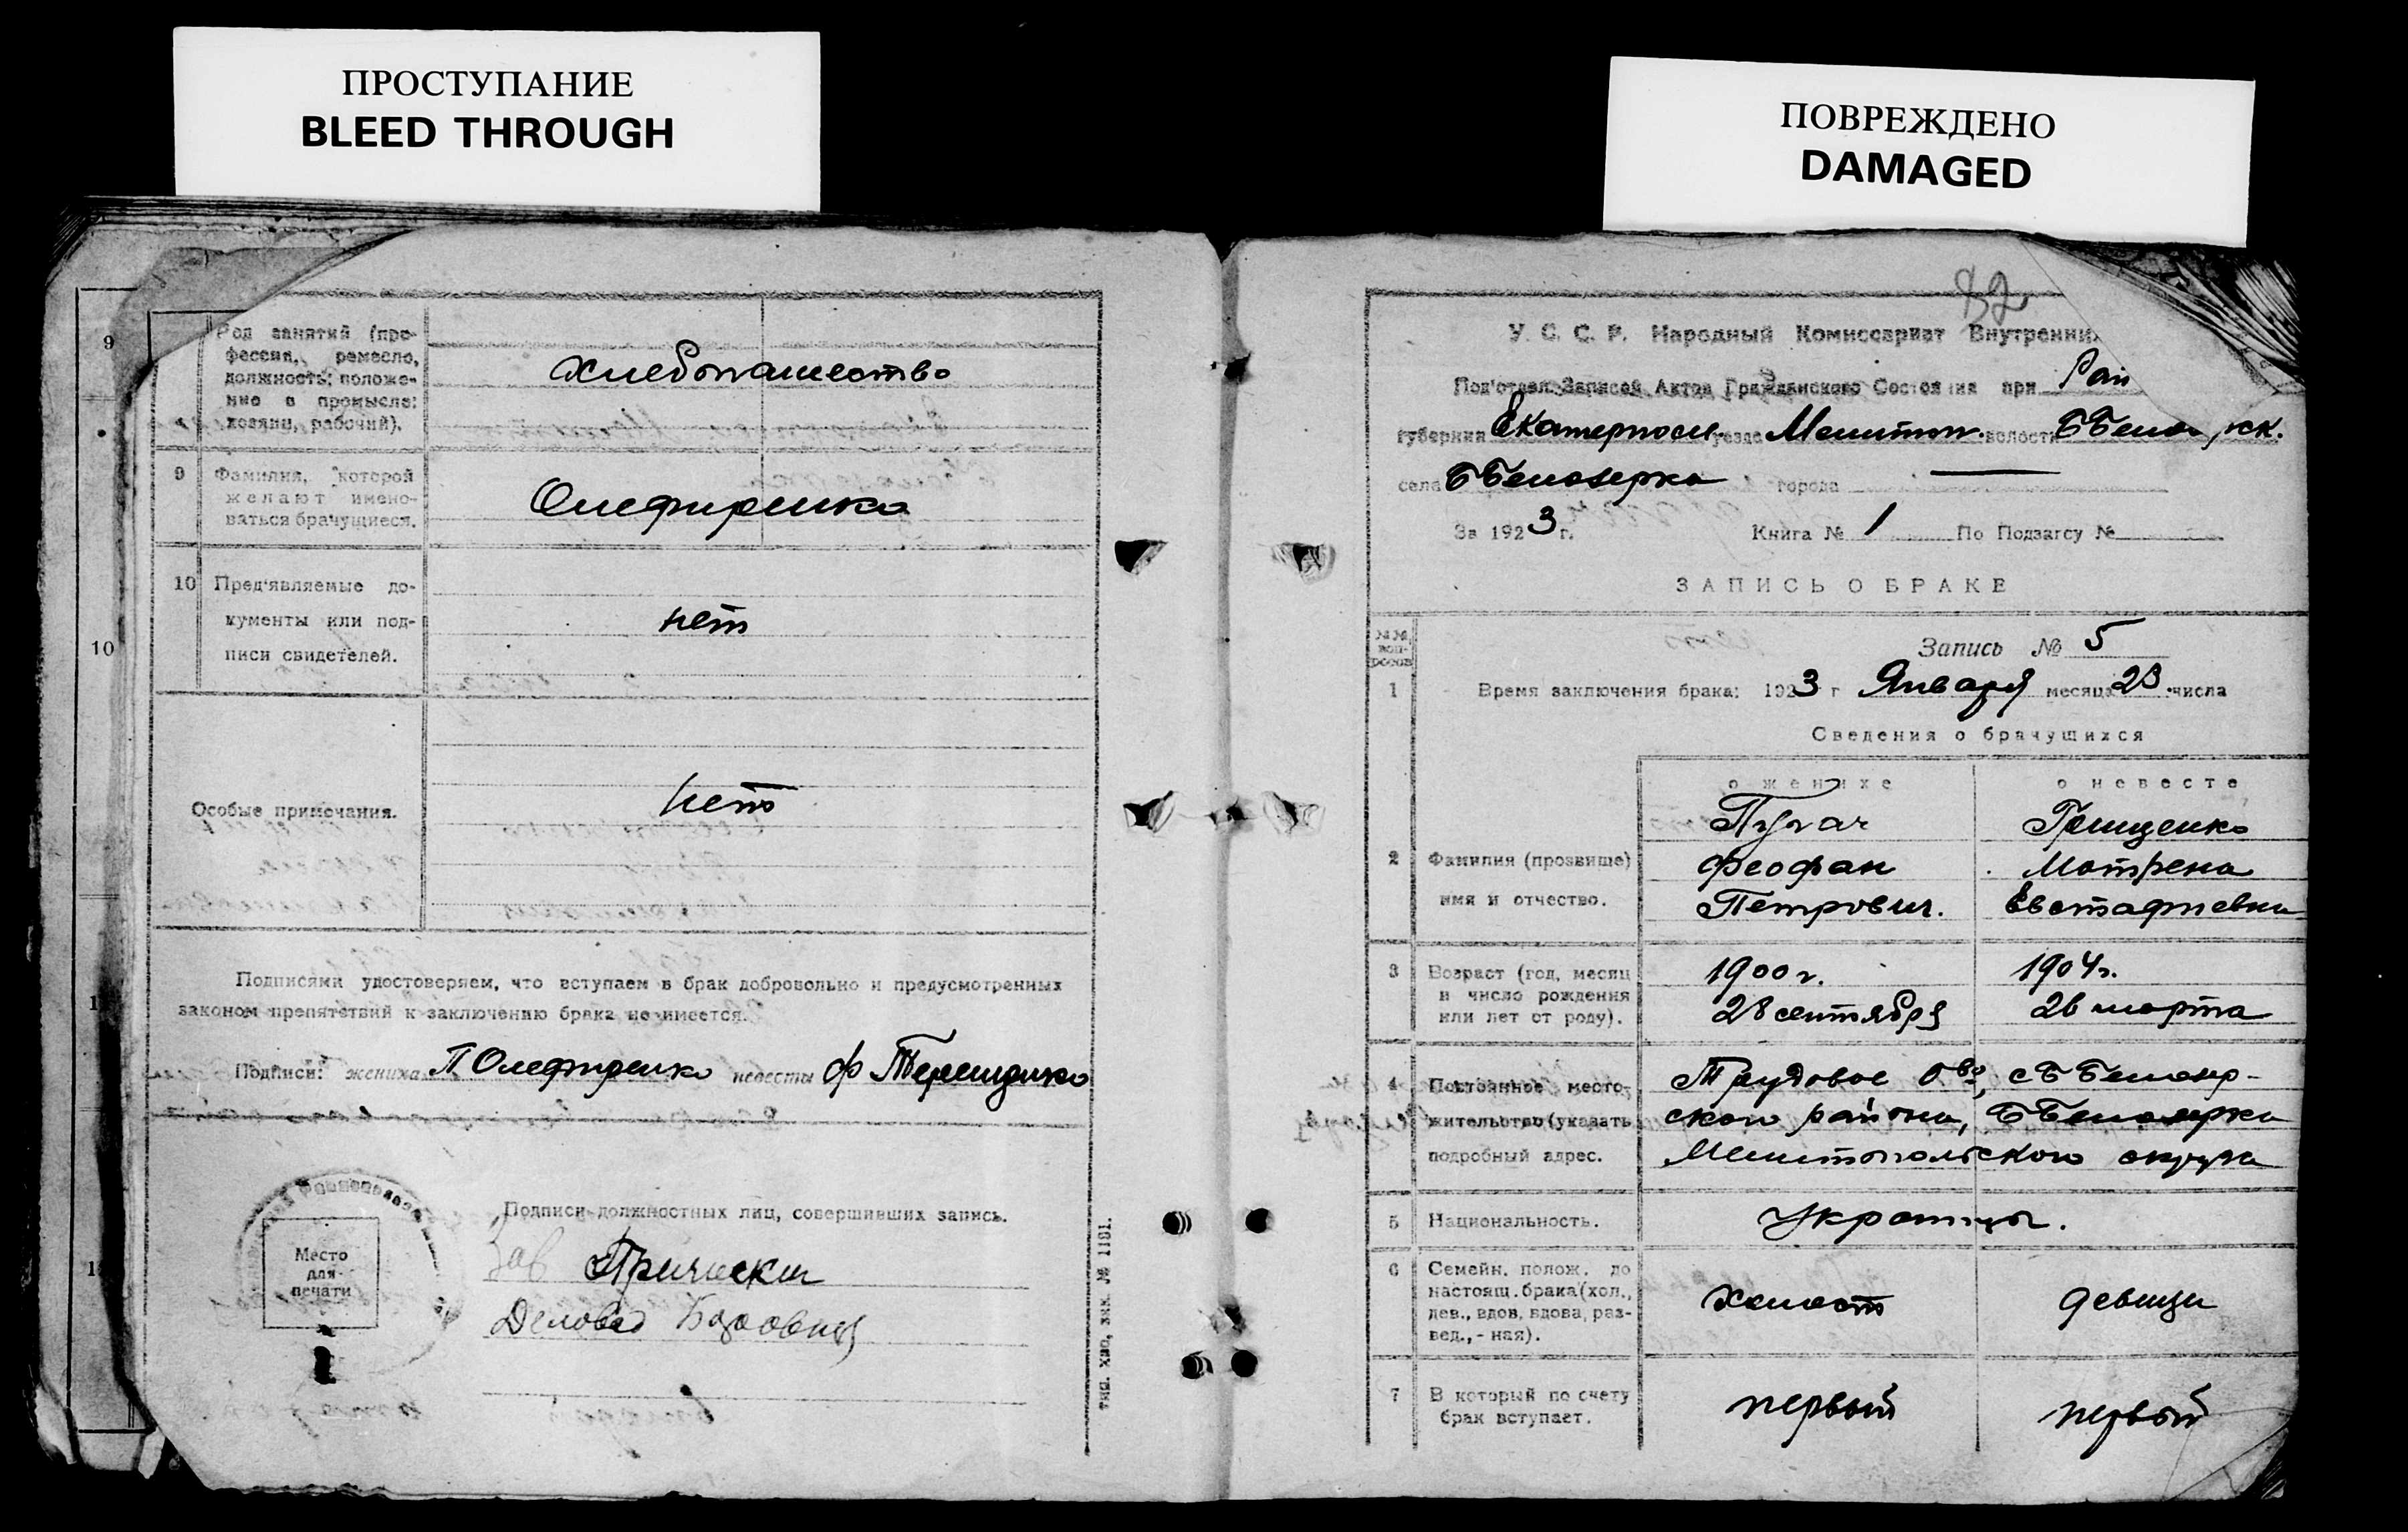 ПРОСТУПАНИЕ
BLEED THROUGH
ПОВРЕЖДЕНО
DAMAGED
9
10
Род занятий (про-
фессия, ремесло,
должность; положе-
ние в промысле:
хозяин, рабочий).
Хлебопашество
9 Фамилия, которой
желают имено-
ваться брачущиеся.
Олефиренко
10 Пред'являемые до-
кументы или под-
писи свидетелей.
нет
Особые примечания.
Нет
Подписями удостоверяем, что вступаем в брак добровольно и предусмотренных
законом препятствий к заключению брака не имеется.
Подписи: жениха П Олефиренко невесты Ф Терещенко
Место
для
печати
Подписи должностных лиц, совершивших запись.
Зав
Делов
тип. хво, зак. № 1101.
82
У. С. С. Р. Народный Комиссариат Внутренних
Под'отдел Записей Актов Гражданского Состояния при Рай
губернии Екатериносл. уезда Мелитоп. волости ББело ск.
села ББелозерка города —
За 1923 г. Книга № 1 По Подзагсу №
ЗАПИСЬ О БРАКЕ
№№ воп-
росов
Запись № 5
1 Время заключения брака: 1923 г Января месяца 23 числа
Сведения о брачущихся
о женихе о невесте
2 Фамилия (прозвище)
имя и отчество.
Пугач Грищенко
Феофан Мотрена
Петрович. Евстафиевна
3 Возраст (год, месяц
и число рождения
или лет от роду).
1900 г. 1904 г.
28 сентября 26 марта
4 Постоянное место-
жительство (указать
подробный адрес.
Трудовое О-во, с Б Белозер-
ского района, Б Белозерка
Мелитопольского округа
5 Национальность.
Украинцы.
6 Семейн. полож. до
настоящ. брака (хол.,
дев., вдов, вдова, раз-
вед., - ная).
холост девица
7 В который по счету
брак вступает.
первый первый